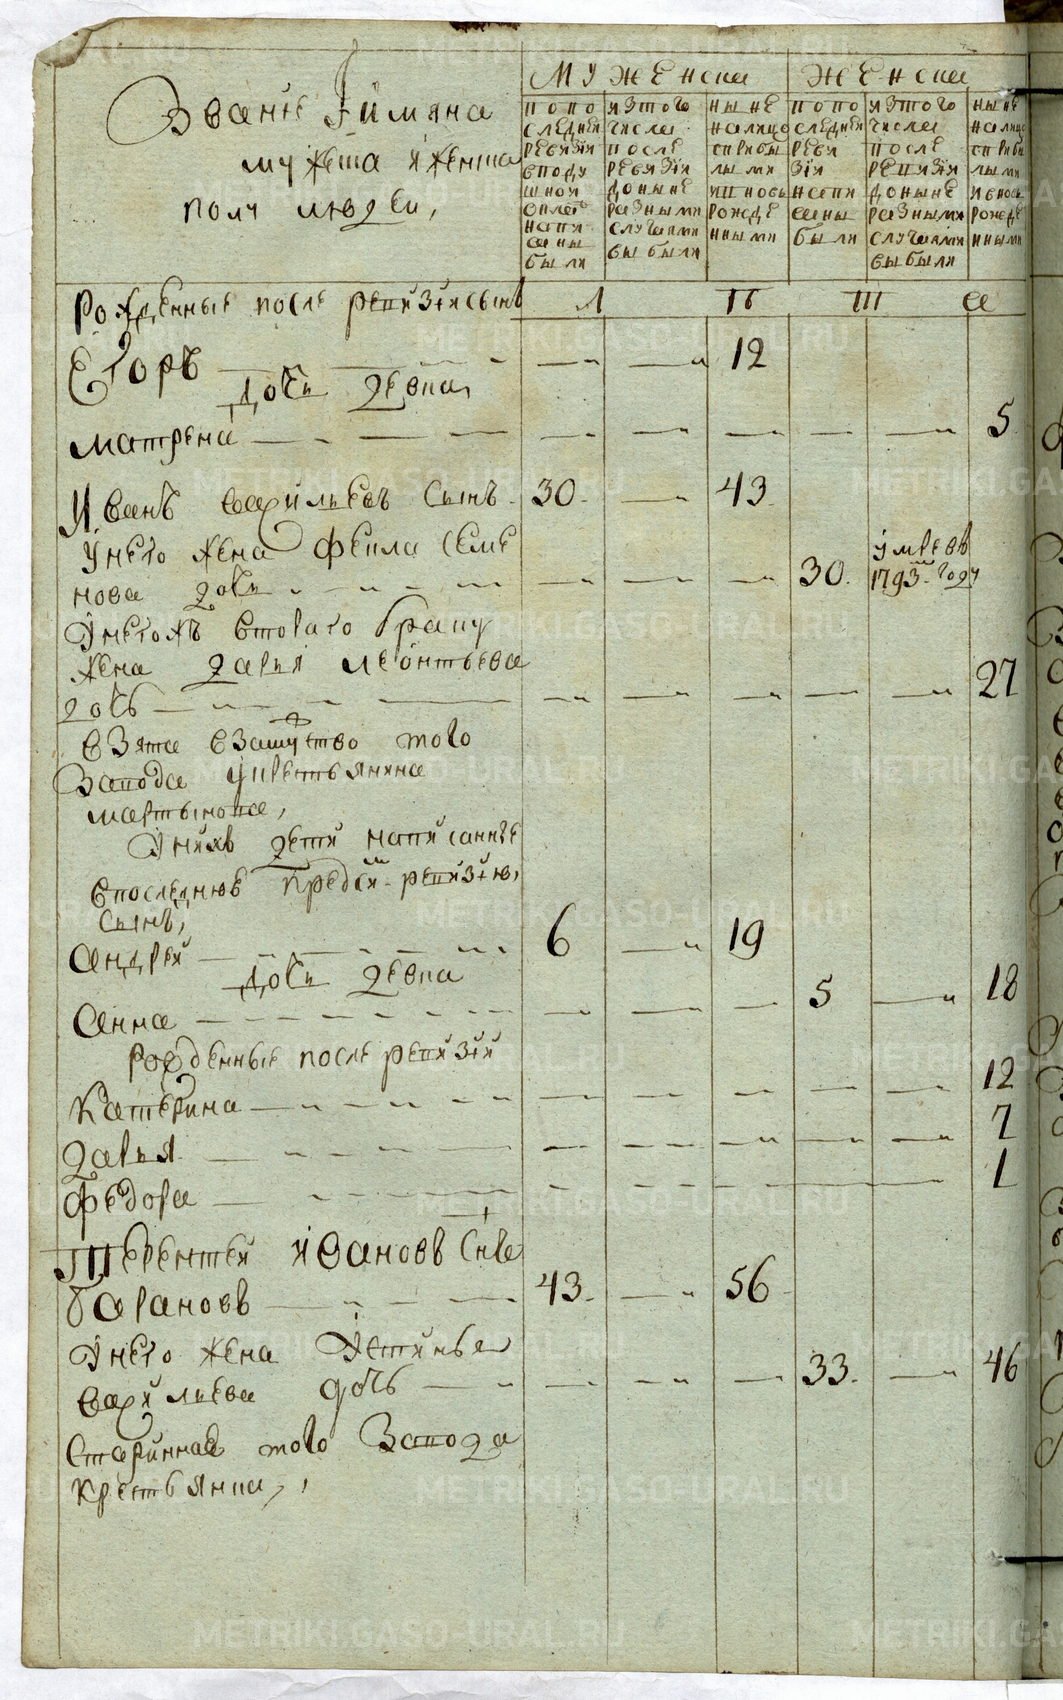 Званіе и имяна
мужеска и женска
полу людеи,
МУЖЕНСКИ
ЖЕНСКИ
попо следнеи ревизіи вподушнои окладъ написаны были
изтого числа после ревизіи доныне разными случаями выбыли
ныне налицо сприбылыми и вновь рожденными
попо следнеи ревизіи написаны были
изтого числа после ревизіи доныне разными случаями выбыли
ныне налицо сприбылыми и вновь рожденными
Рожденные после ревизіи сынъ
Егоръ 12
дочь девка,
матрена 5
Иванъ васильевъ сынъ 30. 43.
У него жена фекла семе
нова дочь 30. умре въ 1793м году
У негожъ втораго браку
жена дарья леонтьева
дочь 27
взята взамужство того
завода укрестьянина
мартынова,
У нихъ дети написанные
впоследнюю предсим ревизию,
сынъ,
андреи 6 19
дочь девка
анна 5 18
рожденные после ревизіи
Катерина 12
дарья 7
федора 1
Терентеи ивановъ снъ
барановъ 43. 56
У него жена Устинья
васильева дочь 33. 46
старинная того завода
крестьянка,
METRIKI.GASO-URAL.RU